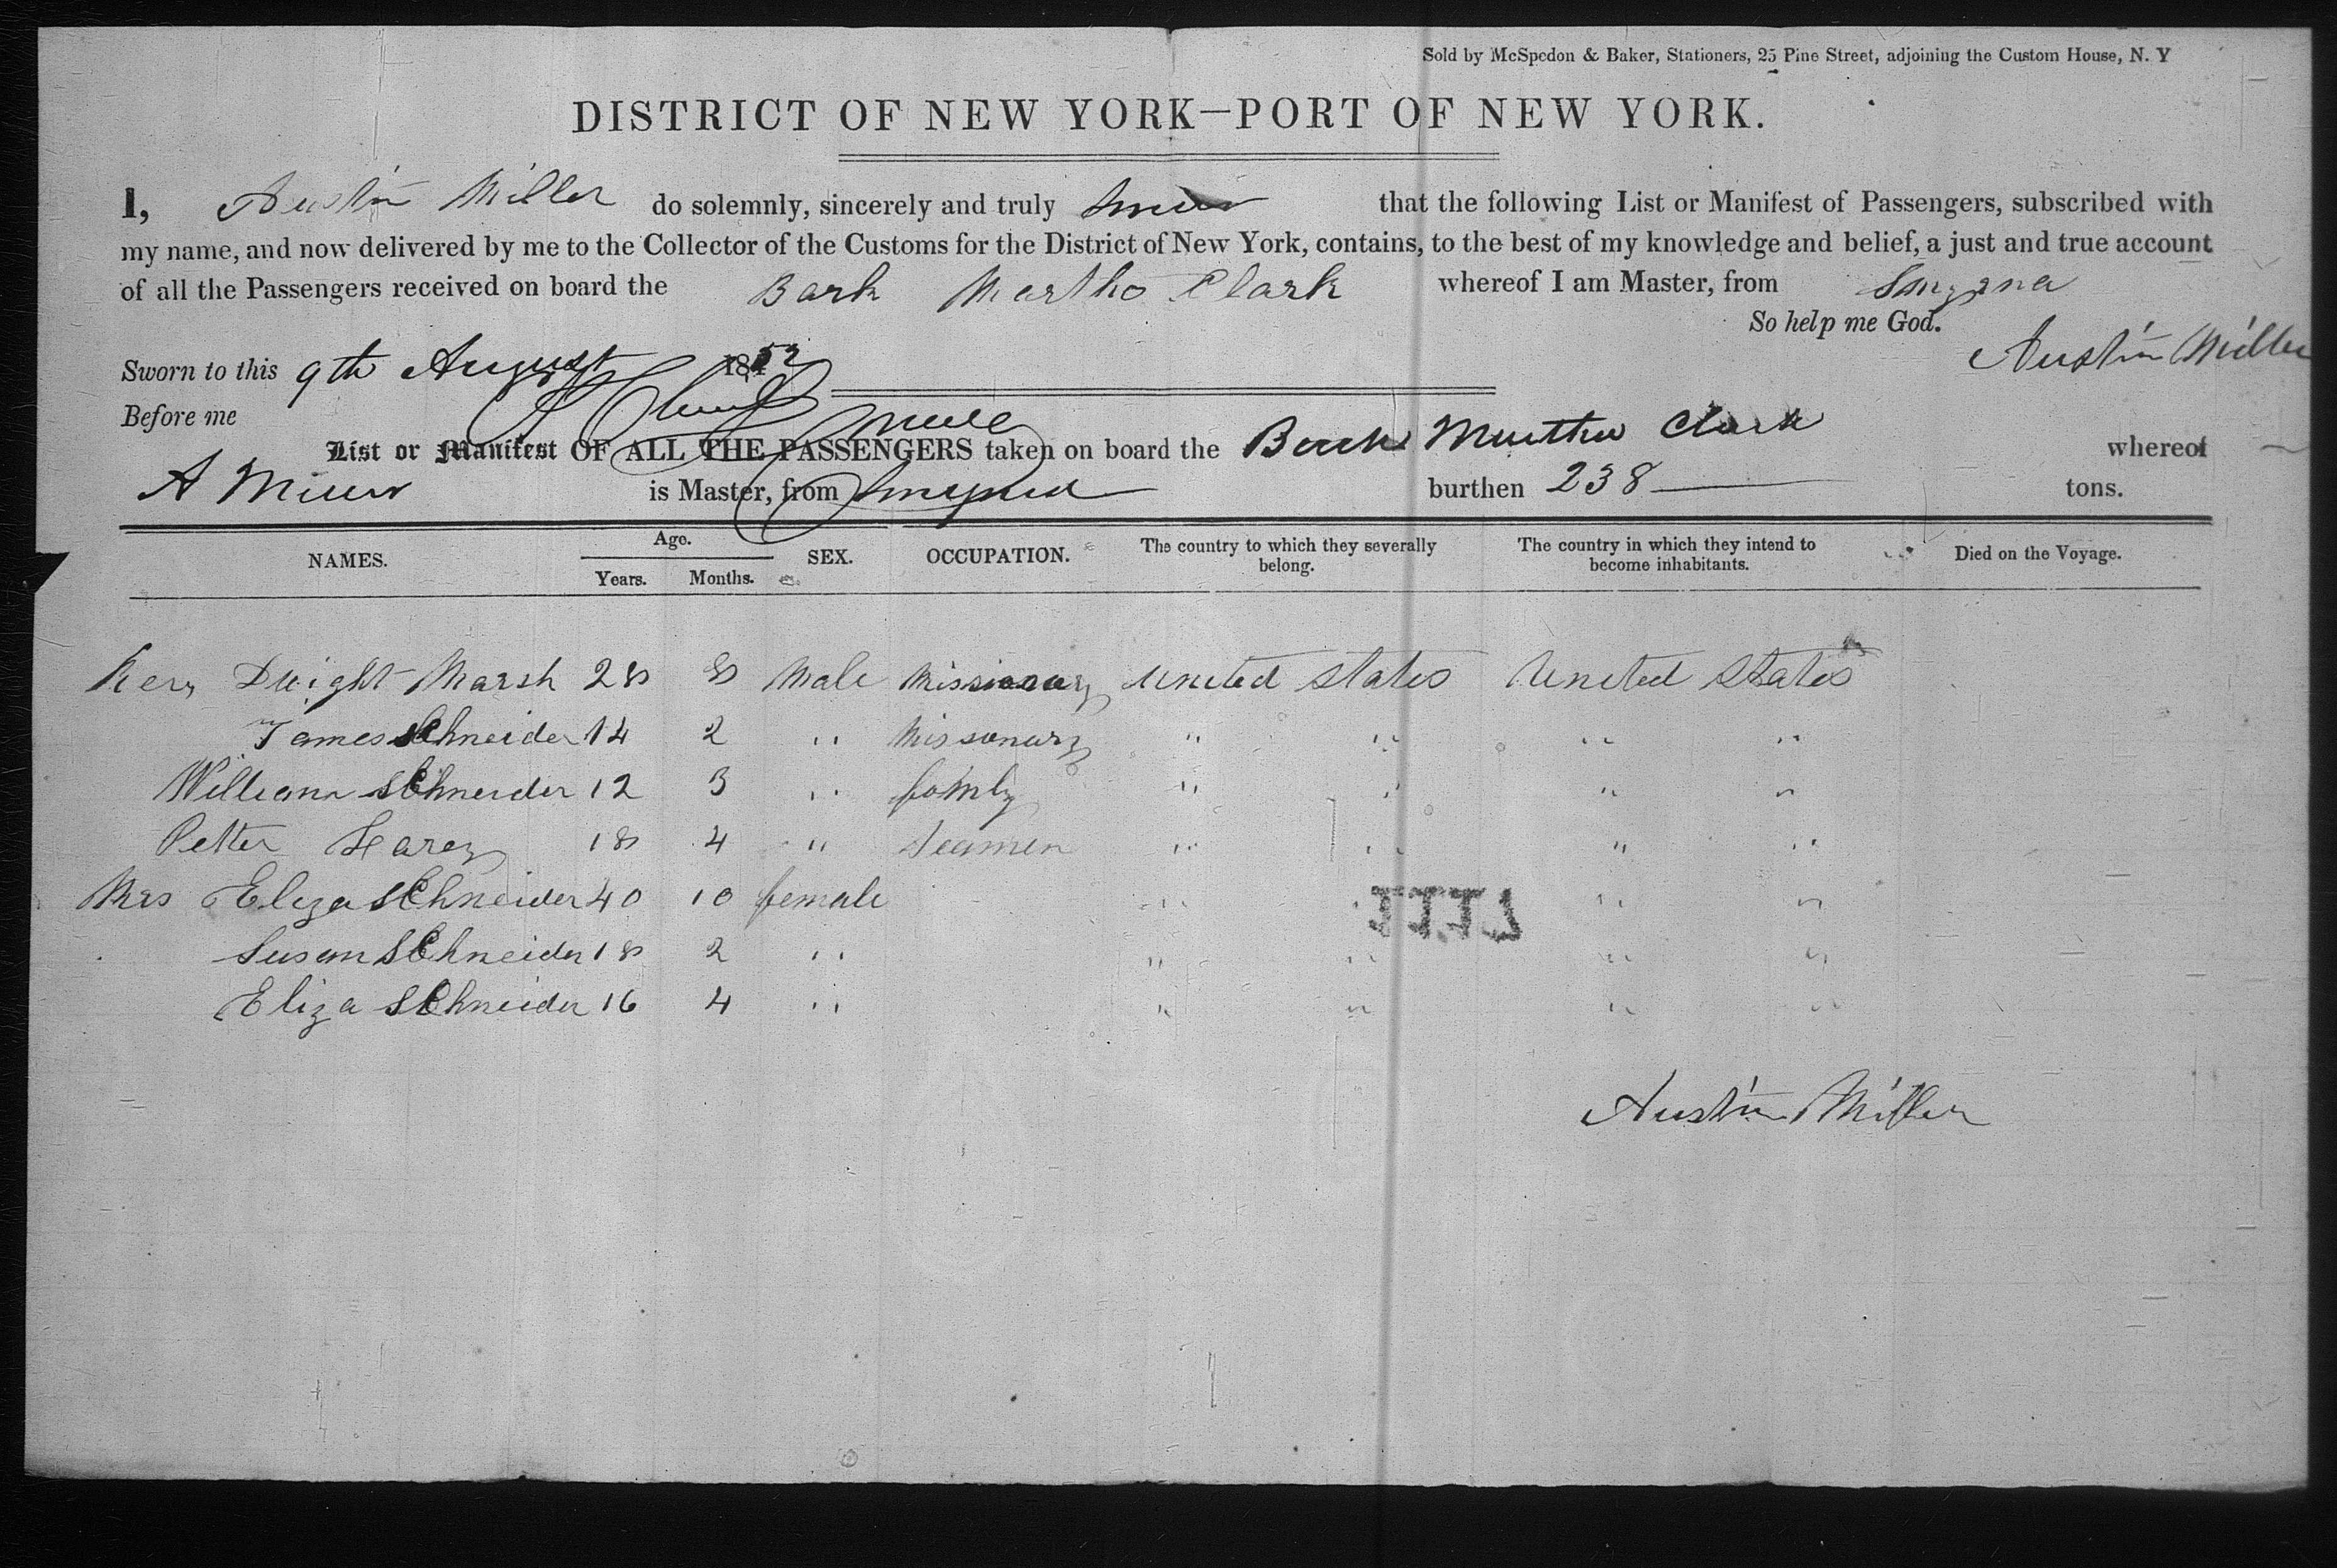 Sold by McSpedon & Baker, Stationers, 25 Pine Street, adjoining the Custom House, N. Y
DISTRICT OF NEW YORK—PORT OF NEW YORK.
I, Austin Miller do solemnly, sincerely and truly swear that the following List or Manifest of Passengers, subscribed with
my name, and now delivered by me to the Collector of the Customs for the District of New York, contains, to the best of my knowledge and belief, a just and true account
of all the Passengers received on board the Bark Martha Clark whereof I am Master, from Smyrna
So help me God.
Austin Miller
Sworn to this 9th August 1852
Before me
List or Manifest OF ALL THE PASSENGERS taken on board the Bark Martha Clark whereof
A Miller is Master, from Smyrna burthen 238 tons.
NAMES. Age. Years. Months. SEX. OCCUPATION. The country to which they severally belong. The country in which they intend to become inhabitants. Died on the Voyage.
Rev Dwight Marsh 28 8 Male Missionary United States United States
James Schneider 14 2 " Missonary " " " "
William Schneider 12 3 " family " " " "
Petter 18 4 " Seamen " " " "
Mrs Eliza Schneider 40 10 female " " " "
Susan Schneider 18 2 " " " " "
Eliza Schneider 16 4 " " " " "
Austin Miller